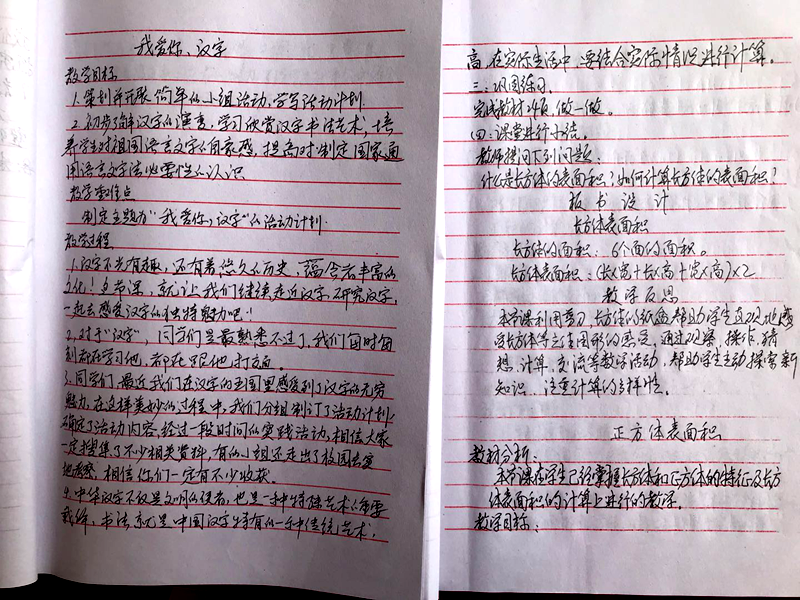 我爱你、汉字
教学目标
1.策划并开展简单的小组活动,学写活动计划.
2.初步了解汉字的演变,学习欣赏汉字书法艺术,培
养学生对祖国语言文字的自豪感,提高对制定国家通
用语言文字法必要性的认识
教学重难点
制定主题为“我爱你,汉字”的活动计划.
教学过程
1.汉字不光有趣,还有着悠久的历史,蕴含着丰富的
文化!这节课,就让我们继续走近汉字,研究汉字,
一起去感受汉字的独特魅力吧!
2.对于“汉字”,同学们是最熟悉不过了,我们每时每
刻都在学习他,都在跟他打交道.
3.同学们,最近我们在汉字的王国里感受到了汉字的无穷
魅力,在这样美妙的过程中,我们分组制订了活动计划,
确定了活动内容,经过一段时间的实践活动,相信大家
一定搜集了不少相关资料,有的小组还走出了校园去实
地考察,相信你们一定有不少收获.
4.中华汉字不仅是文明的使者,也是一种特殊艺术的重要
载体,书法就是中国汉字特有的一种传统艺术.
高.在实际生活中,要结合实际情况进行计算。
三:巩固练习.
完成教材 做一做.
四:课堂进行小结.
教师提问下列问题:
什么是长方体的表面积?如何计算长方体的表面积?
板书设计
长方体表面积
长方体的面积:6个面的面积。
长方体表面积:(长×宽+长×高+宽×高)×2
教学反思
本节课利用 长方体的纸盒帮助学生直观地感
受长方体等立体图形的 ,通过观察,操作,猜
想.计算,交流等数学活动,帮助学生主动探索新
知识.注重计算的多样性.
正方体表面积
教材分析:
本节课在学生已经掌握长方体和正方体的特征及长方
体表面积的计算上进行的教学.
教学目标: